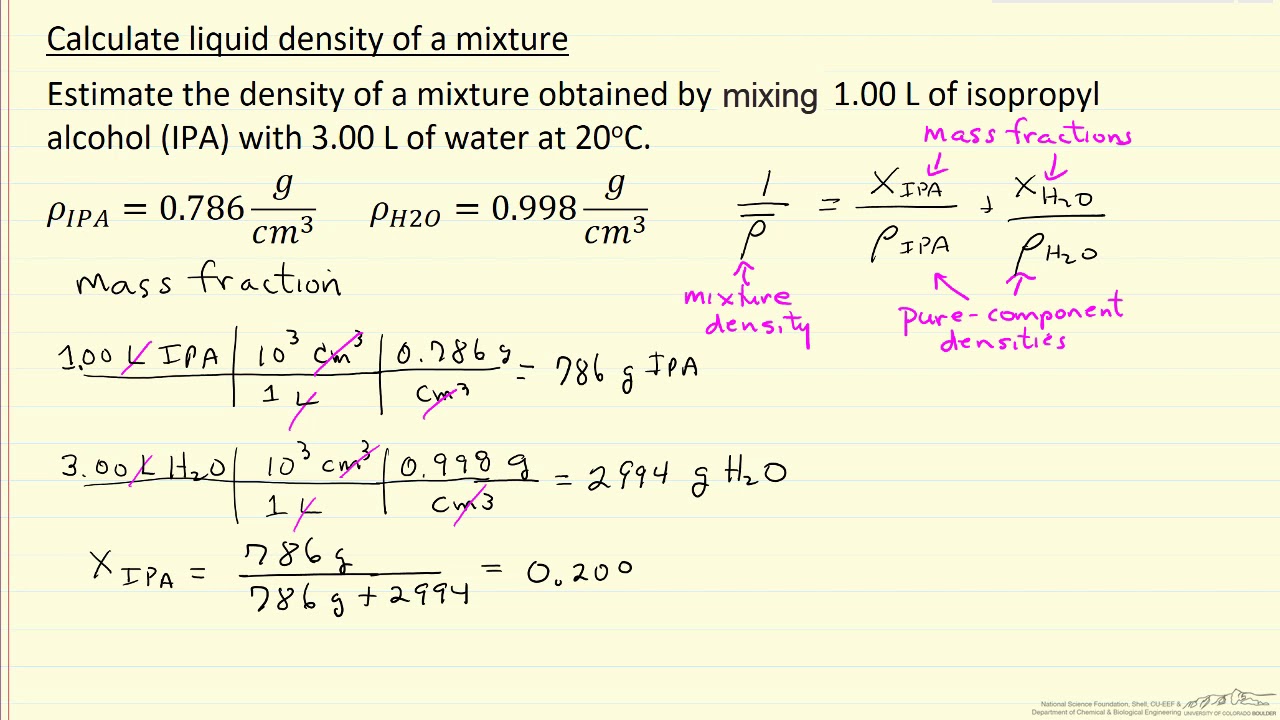 Calculate liquid density of a mixture
Estimate the density of a mixture obtained by mixing 1.00 L of isopropyl
alcohol (IPA) with 3.00 L of water at 20°C.
mass fractions
ρIPA = 0.786 g/cm³ ρH2O = 0.998 g/cm³
1/ρ̅ = xIPA/ρIPA + xH₂O/ρH₂O
mixture
density
pure-component
densities
mass fraction
1.00 L IPA | 10³ cm³ / 1 L | 0.786 g / cm³ = 786 g IPA
3.00 L H₂O | 10³ cm³ / 1 L | 0.998 g / cm³ = 2994 g H₂O
xIPA = 786 g / 786 g + 2994 = 0.200
National Science Foundation, Shell, CU-EEF &
Department of Chemical & Biological Engineering UNIVERSITY OF COLORADO BOULDER